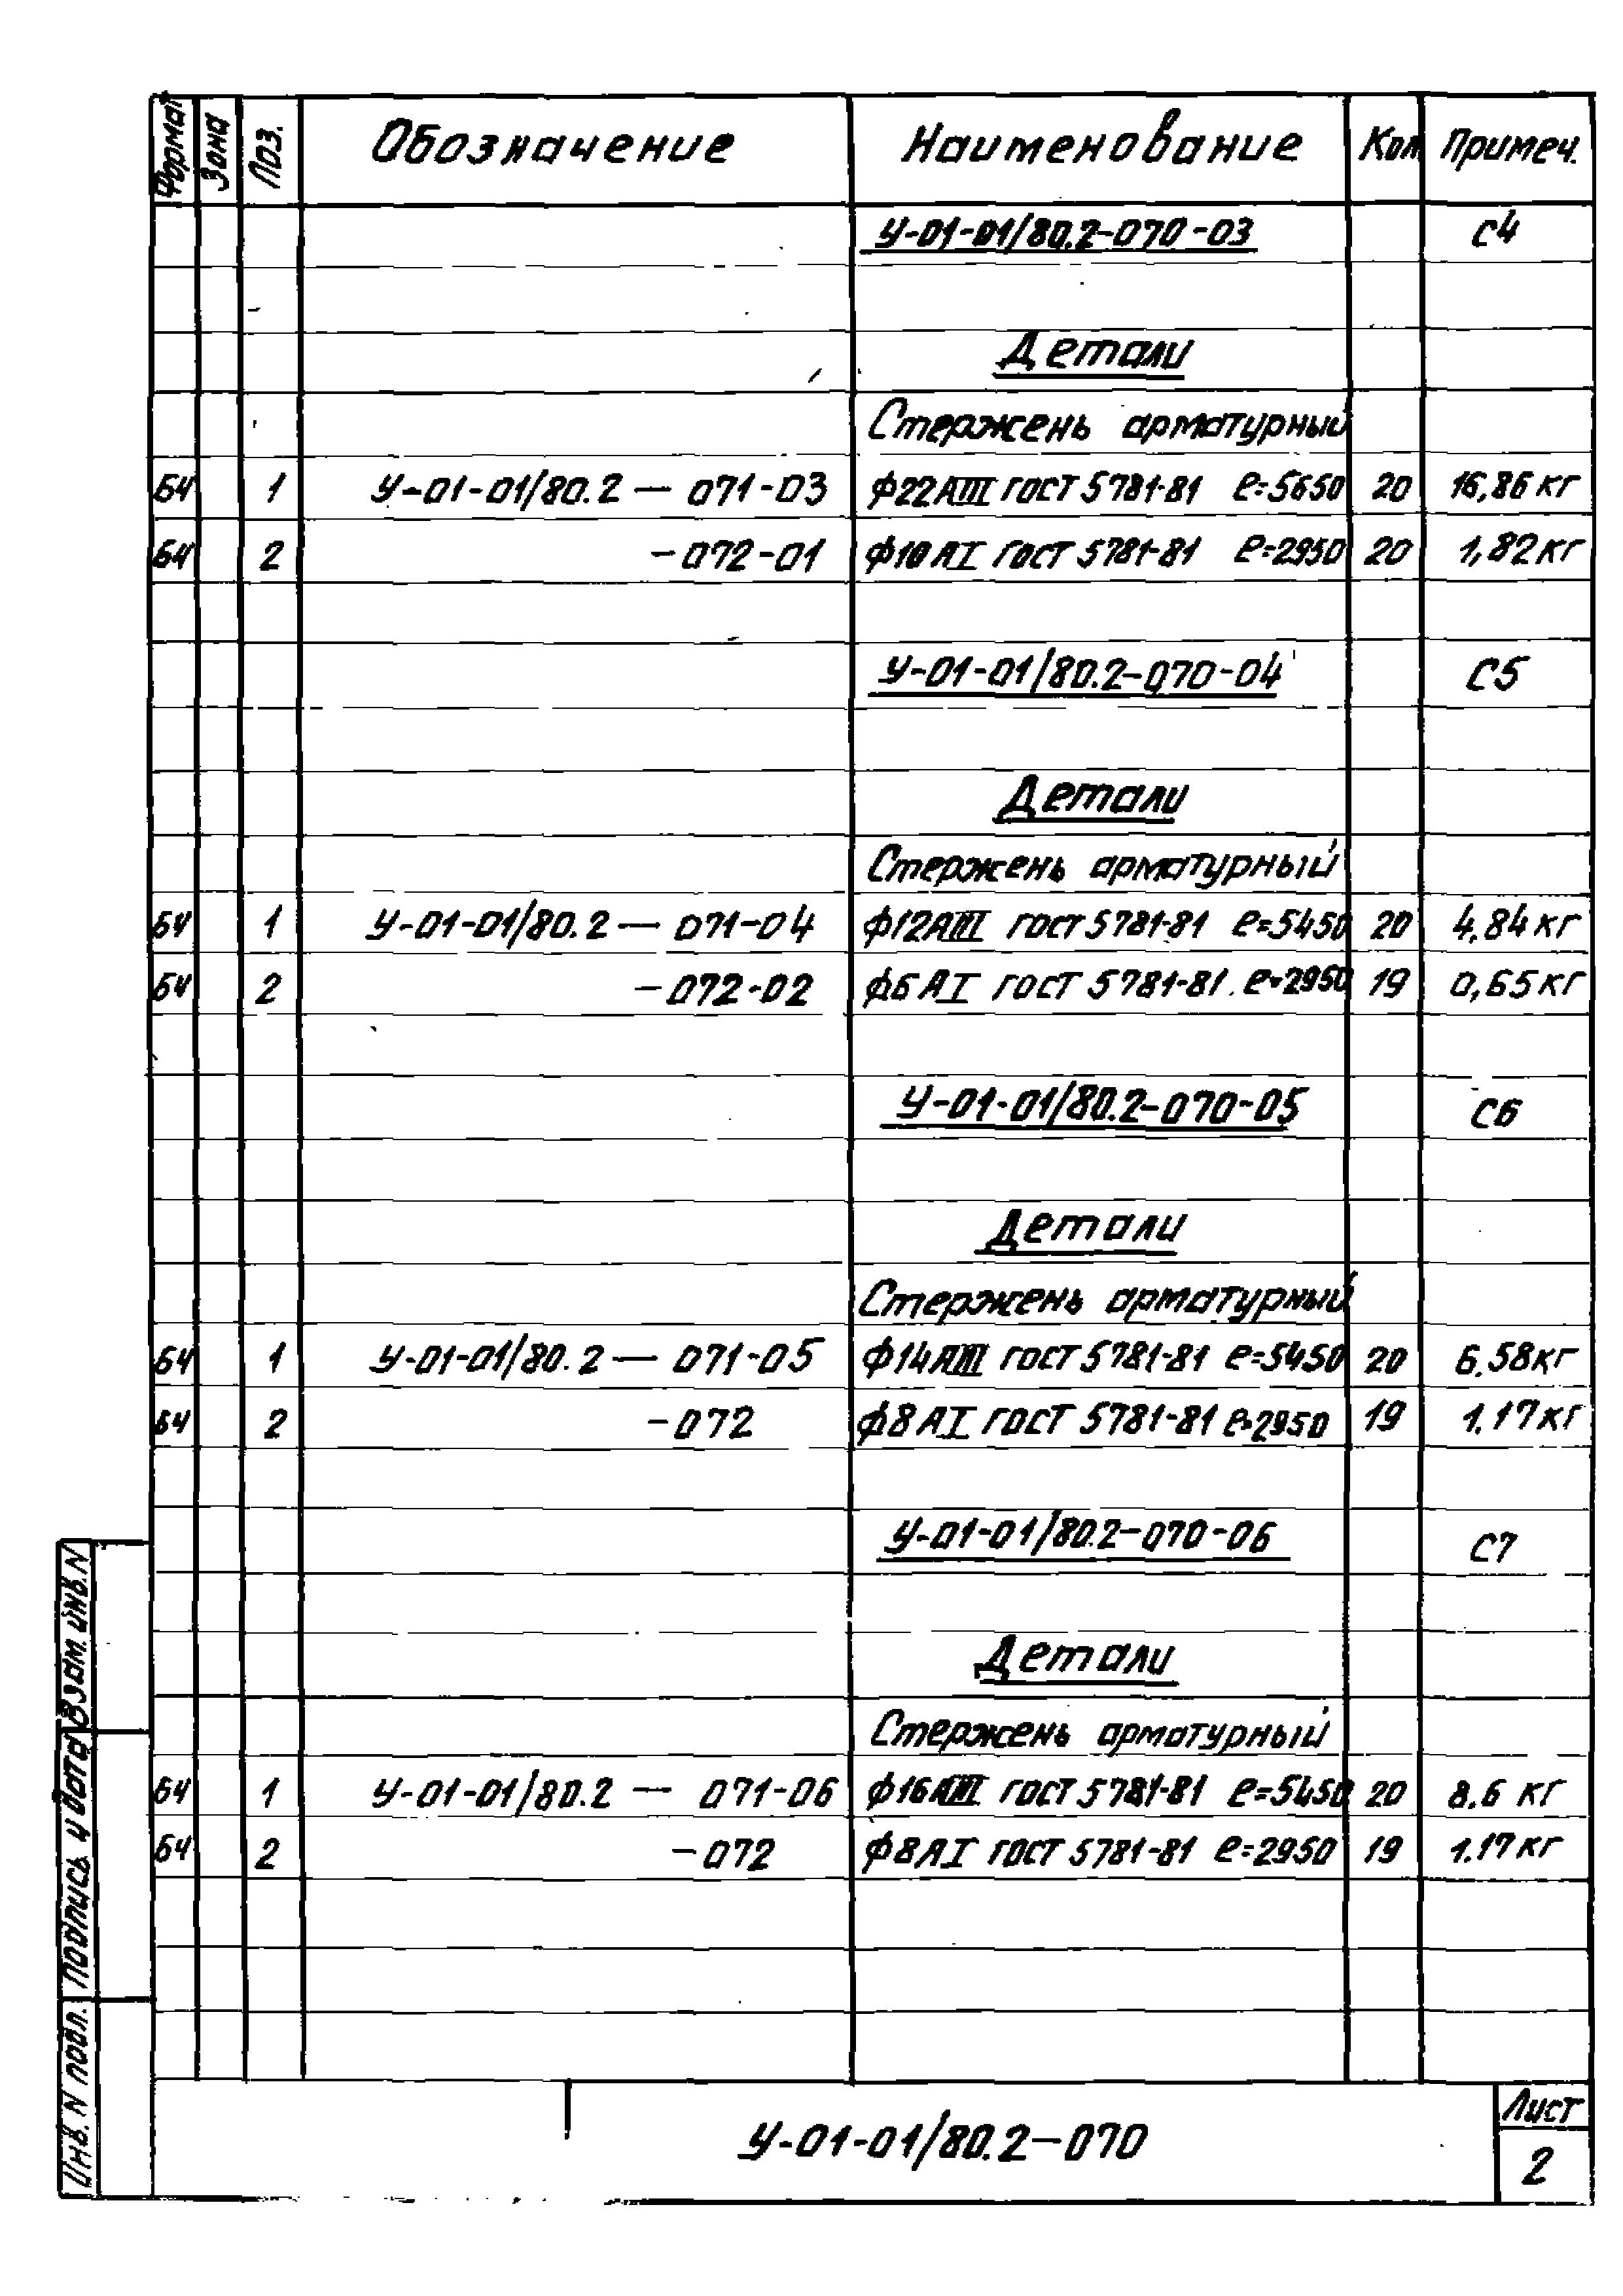 Формат Зона Поз. Обозначение Наименование Кол. Примеч.
У-01-01/80.2-070-03 С4
Детали
Стержень арматурный
БЧ 1 У-01-01/80.2 — 071-03 ф22АIII ГОСТ 5781-81 ℓ=5650 20 16,86 кг
БЧ 2 -072-01 ф10АI ГОСТ 5781-81 ℓ=2950 20 1,82 кг
У-01-01/80.2-070-04 С5
Детали
Стержень арматурный
БЧ 1 У-01-01/80.2 — 071-04 ф12АIII ГОСТ 5781-81 ℓ=5450 20 4,84 кг
БЧ 2 -072-02 ф6АI ГОСТ 5781-81 ℓ=2950 19 0,65 кг
У-01-01/80.2-070-05 С6
Детали
Стержень арматурный
БЧ 1 У-01-01/80.2 — 071-05 ф14АIII ГОСТ 5781-81 ℓ=5450 20 6.58 кг
БЧ 2 -072 ф8АI ГОСТ 5781-81 ℓ=2950 19 1.17 кг
У-01-01/80.2-070-06 С7
Детали
Стержень арматурный
БЧ 1 У-01-01/80.2 — 071-06 ф16АIII ГОСТ 5781-81 ℓ=5450 20 8.6 кг
БЧ 2 -072 ф8АI ГОСТ 5781-81 ℓ=2950 19 1.17 кг
Взам. инв. N
Подпись и дата
Инв. N подл.
У-01-01/80.2-070
Лист
2